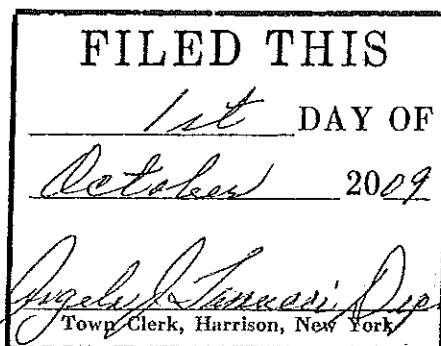 FILED THIS
1st DAY OF
October 2009
Angela J
Town Clerk, Harrison, New York